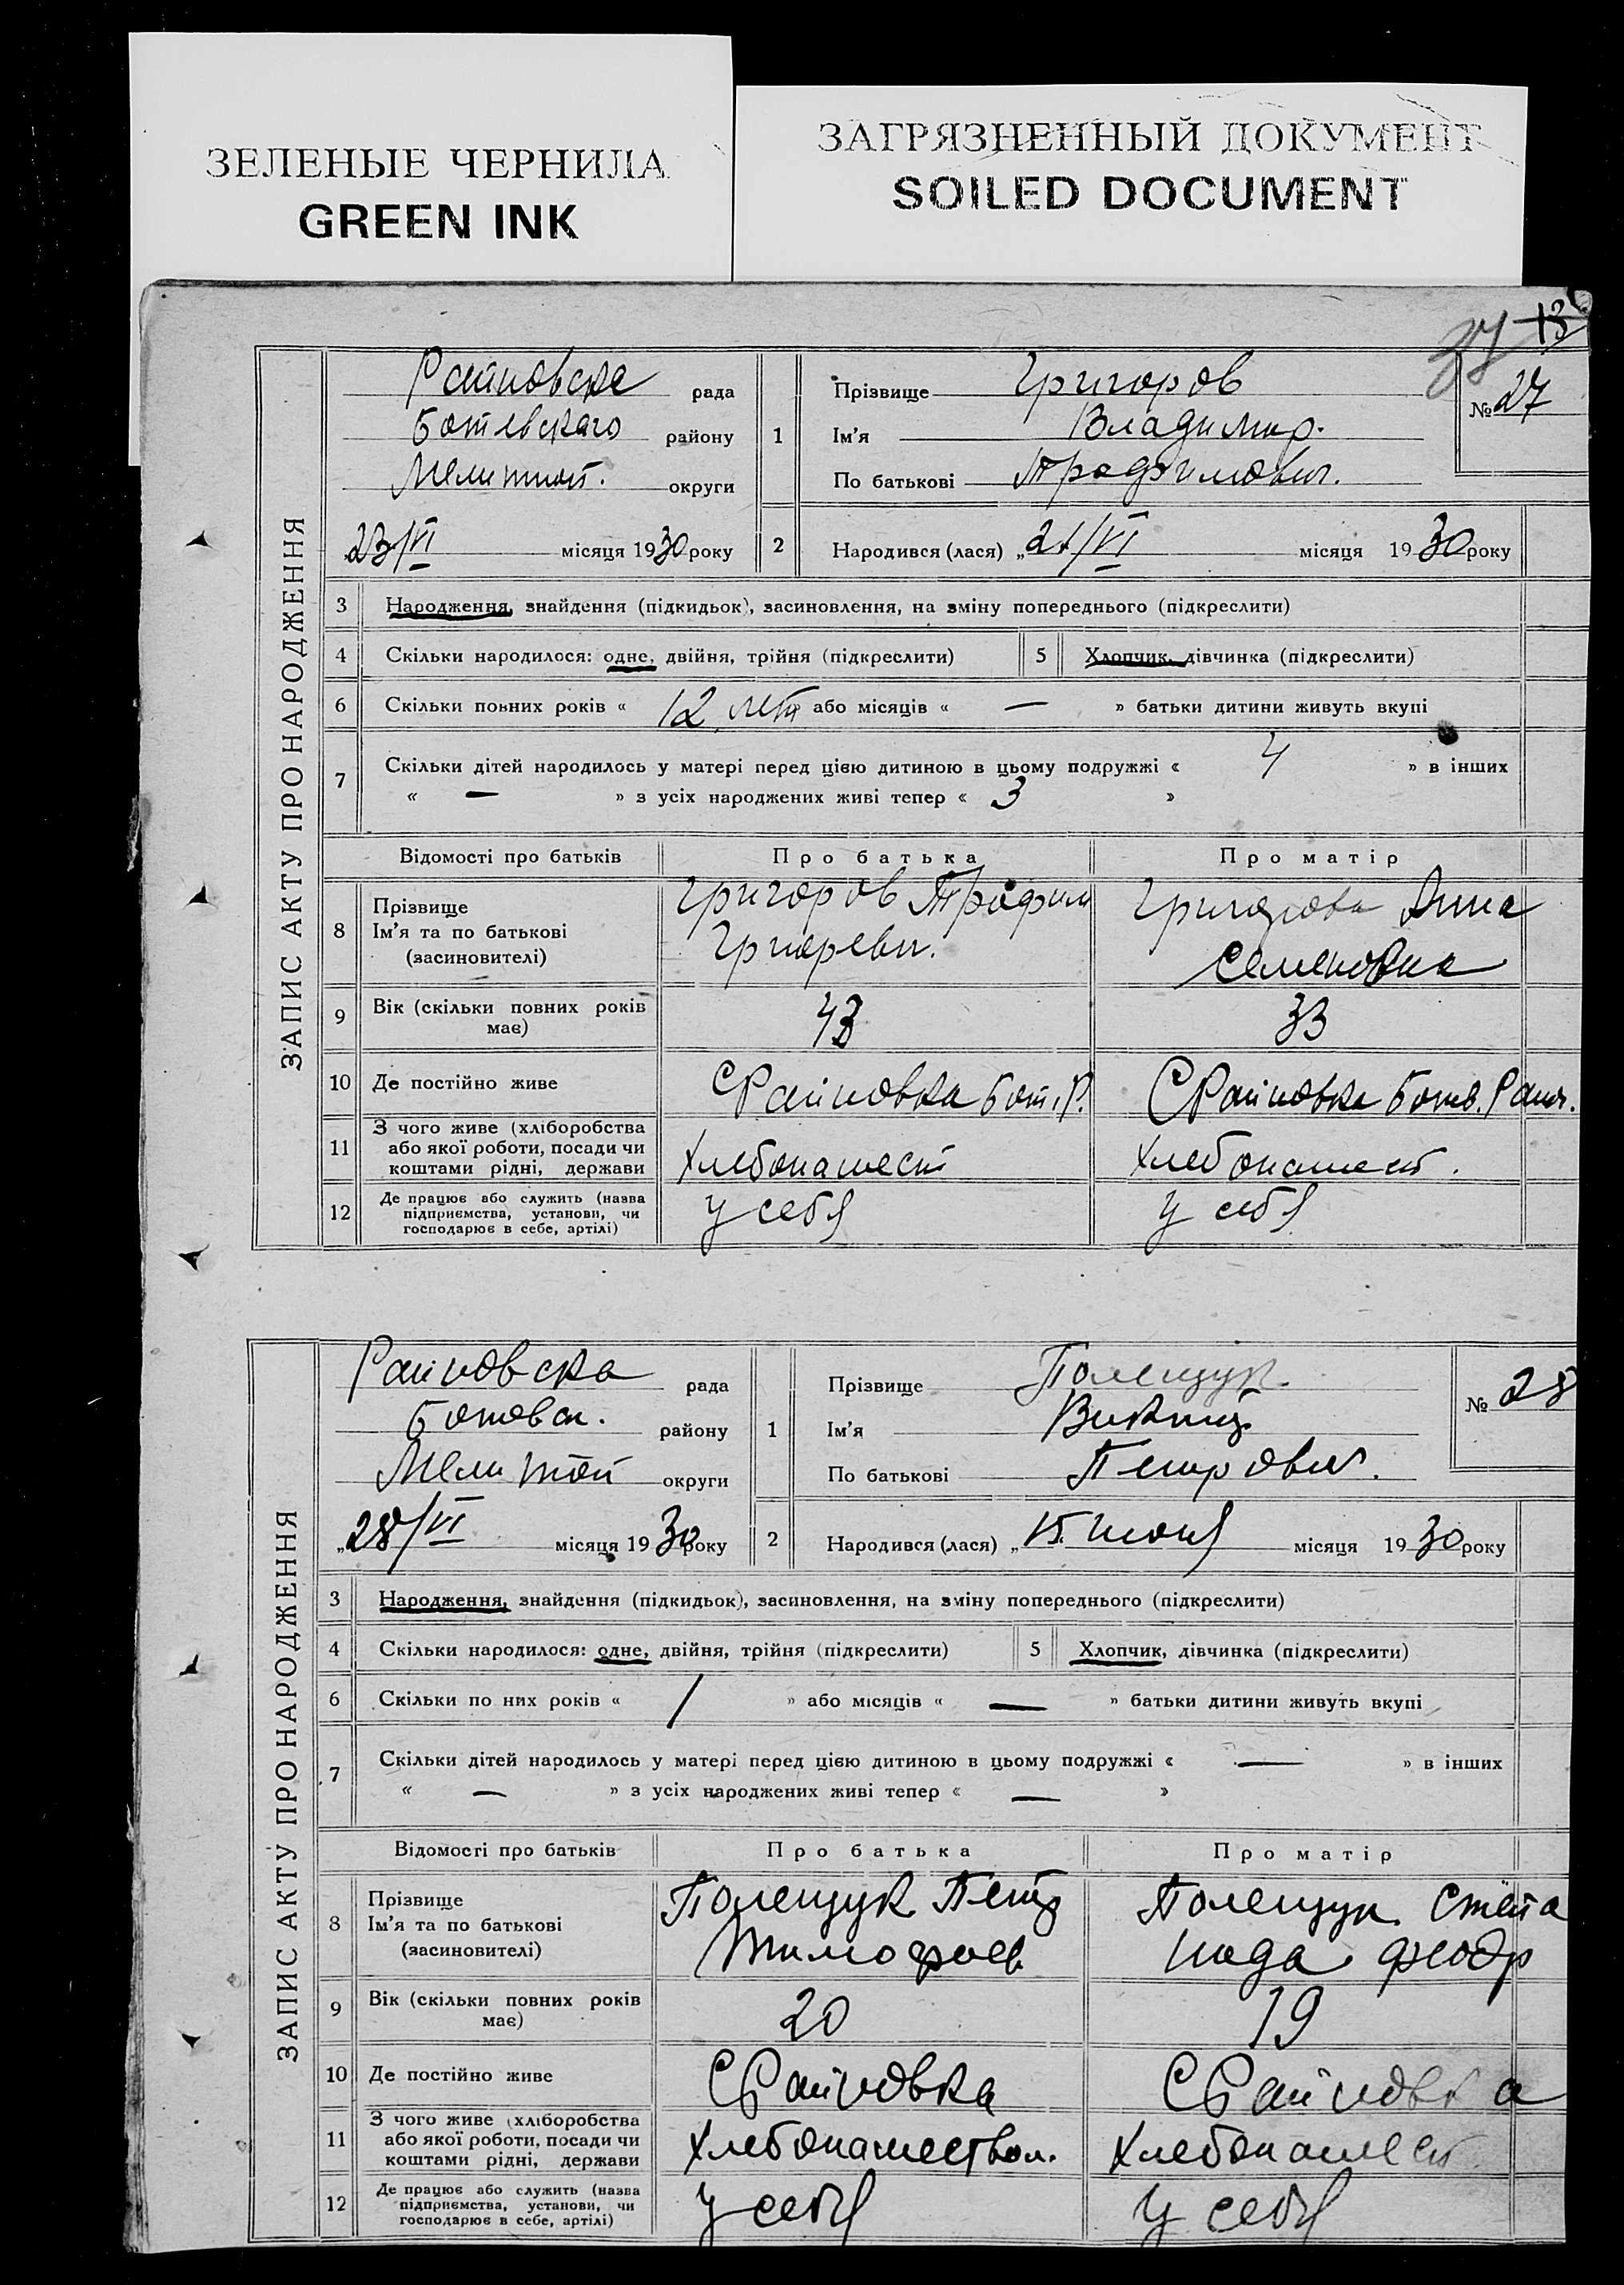 ЗЕЛЕНЫЕ ЧЕРНИЛА
GREEN INK
ЗАГРЯЗНЕННЫЙ ДОКУМЕНТ
SOILED DOCUMENT
13
ЗАПИС АКТУ ПРО НАРОДЖЕННЯ
Райновска рада
Ботевского району
Мелитоп. округи
23/VI місяця 1930 року
1 Прізвище Григоров
Ім'я Владимир.
По батькові Трофимович.
№ 27
2 Народився (лася) „21/VI місяця 1930 року
3 Народження, знайдення (підкидьок), засиновлення, на зміну попереднього (підкреслити)
4 Скільки народилося: одне, двійня, трійня (підкреслити) 5 Хлопчик, дівчинка (підкреслити)
6 Скільки повних років « 12 лет або місяців « — » батьки дитини живуть вкупі
7 Скільки дітей народилось у матері перед цією дитиною в цьому подружжі « 4 » в інших
« — » з усіх народжених живі тепер « 3 »
Відомості про батьків Про батька Про матір
8 Прізвище Ім'я та по батькові (засиновителі)
Григоров Трофим Григореви.
Григорова Анна Семеновна
9 Вік (скільки повних років має) 43 33
10 Де постійно живе С Райновка Бот. Р. С Райновка Ботев. Райн.
11 З чого живе (хліборобства або якої роботи, посади чи коштами рідні, держави
Хлебопашест Хлебопашест.
12 Де працює або служить (назва підприємства, установи, чи господарює в себе, артілі)
У себя У себя
ЗАПИС АКТУ ПРО НАРОДЖЕННЯ
Райновска рада
Ботовск. району
Мелитоп округи
„28/VI місяця 1930 року
1 Прізвище Полещук.
Ім'я Виктор
По батькові Петрович.
№ 28
2 Народився (лася) „15. Июня місяця 1930 року
3 Народження, знайдення (підкидьок), засиновлення, на зміну попереднього (підкреслити)
4 Скільки народилося: одне, двійня, трійня (підкреслити) 5 Хлопчик, дівчинка (підкреслити)
6 Скільки по них років « 1 » або місяців « — » батьки дитини живуть вкупі
7 Скільки дітей народилось у матері перед цією дитиною в цьому подружжі « — » в інших
« — » з усіх народжених живі тепер « — »
Відомості про батьків Про батька Про матір
8 Прізвище Ім'я та по батькові (засиновителі)
Полещук Петр Тимофеев
Полещук Степа нида Феодр
9 Вік (скільки повних років має) 20 19
10 Де постійно живе С Райновка С Райновка
11 З чого живе (хліборобства або якої роботи, посади чи коштами рідні, держави
Хлебопашеством. Хлебопашест
12 Де працює або служить (назва підприємства, установи, чи господарює в себе, артілі)
У себя У себя